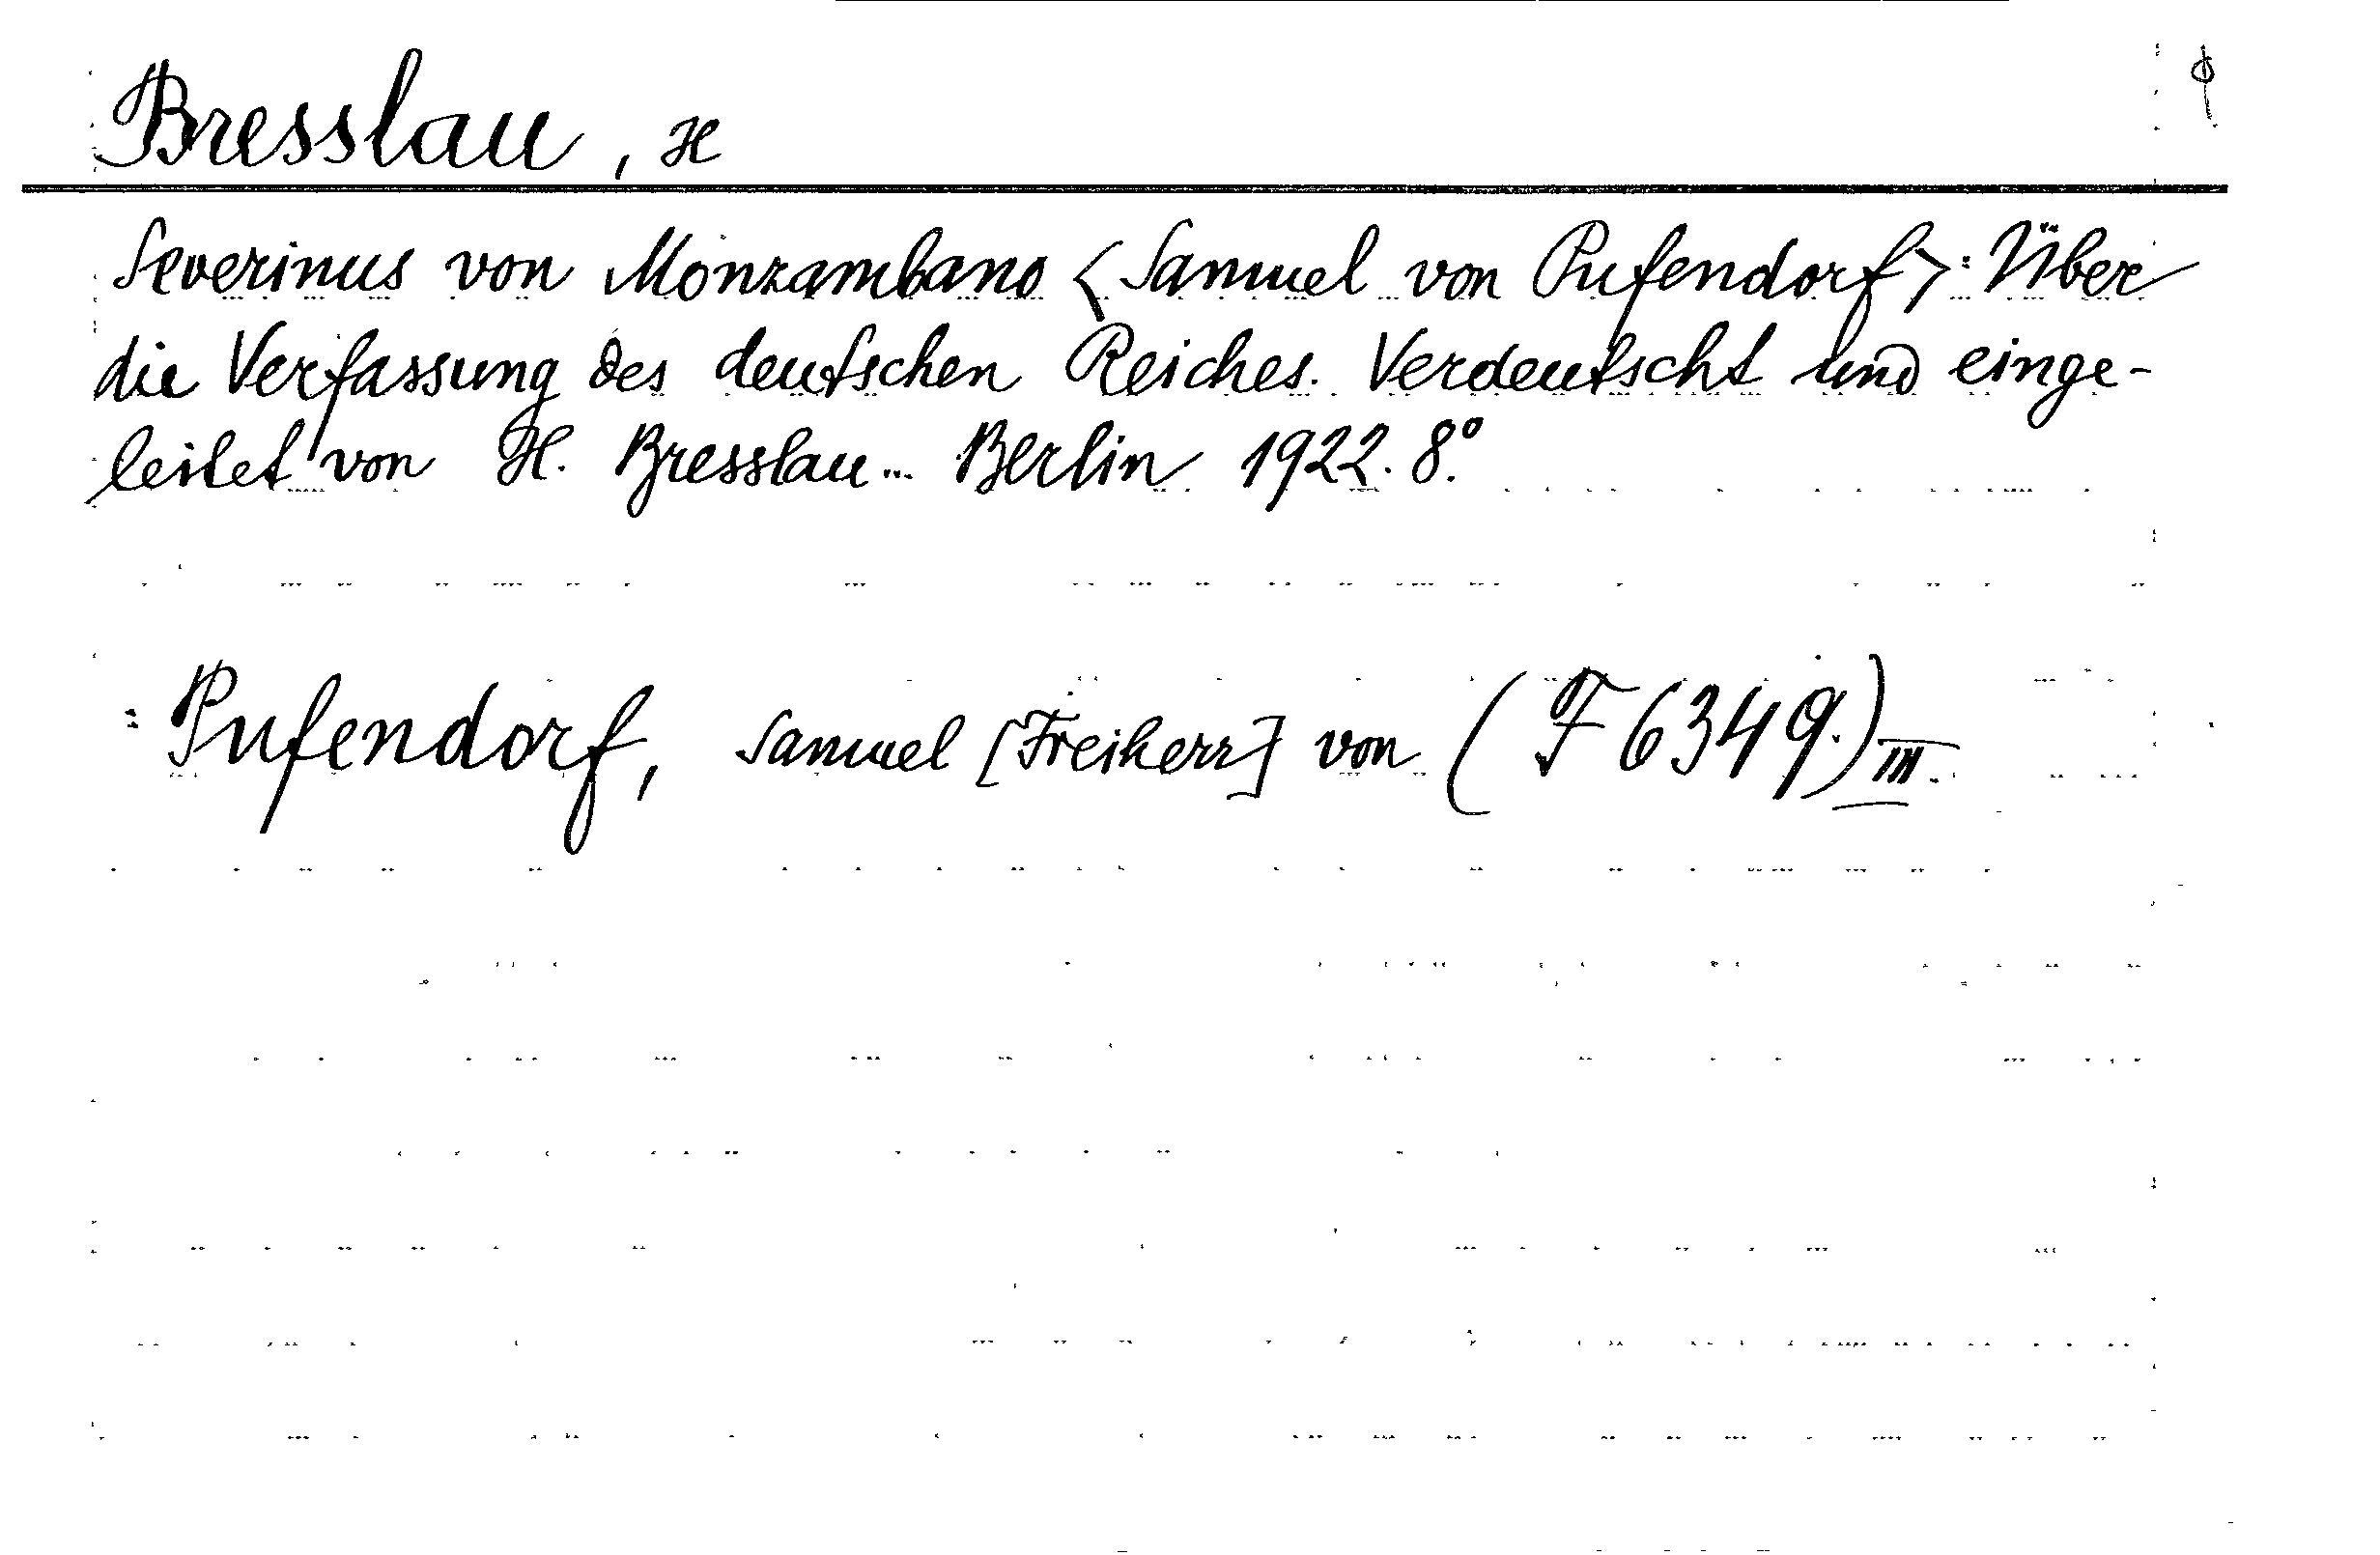 Bresslau, H
Severinus von Monzambano <Samuel von Pufendorf>: Über
die Verfassung des deutschen Reiches. Verdeutscht und einge-
leitet von H. Bresslau... Berlin 1922. 8°.
: Pufendorf, Samuel [Freiherr] von (F 6349.) III.